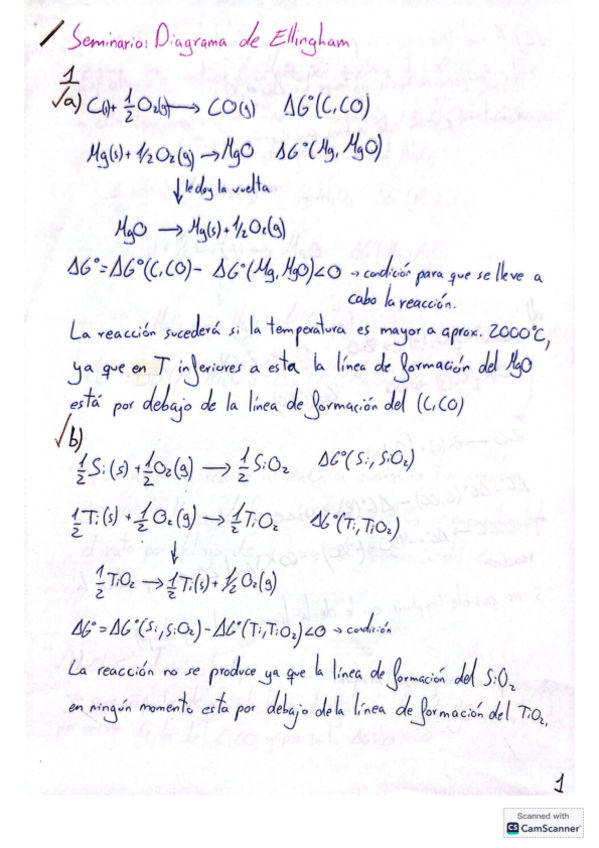 Seminario: Diagrama de Ellingham
1
√a) C(s)+ 1/2 O₂(g) → CO(g) ΔG°(C,CO)
Mg(s)+ 1/2 O₂(g) → MgO ΔG°(Mg, MgO)
↓ le doy la vuelta
MgO → Mg(s)+1/2 O₂(g)
ΔG°=ΔG°(C,CO)- ΔG°(Mg,MgO)<0 → condición para que se lleve a
cabo la reacción.
La reacción sucederá si la temperatura es mayor a aprox. 2000°C,
ya que en T inferiores a esta la línea de formación del MgO
está por debajo de la línea de formación del (C,CO)
√b)
1/2 Si(s) + 1/2 O₂(g) → 1/2 SiO₂ ΔG°(Si, SiO₂)
1/2 Ti(s) + 1/2 O₂(g) → 1/2 TiO₂ ΔG°(Ti,TiO₂)
↓
1/2 TiO₂ → 1/2 Ti(s)+ 1/2 O₂(g)
ΔG°=ΔG°(Si,SiO₂)-ΔG°(Ti,TiO₂)<0 → condición
La reacción no se produce ya que la línea de formación del SiO₂
en ningún momento esta por debajo de la línea de formación del TiO₂.
1
Scanned with
CS CamScanner